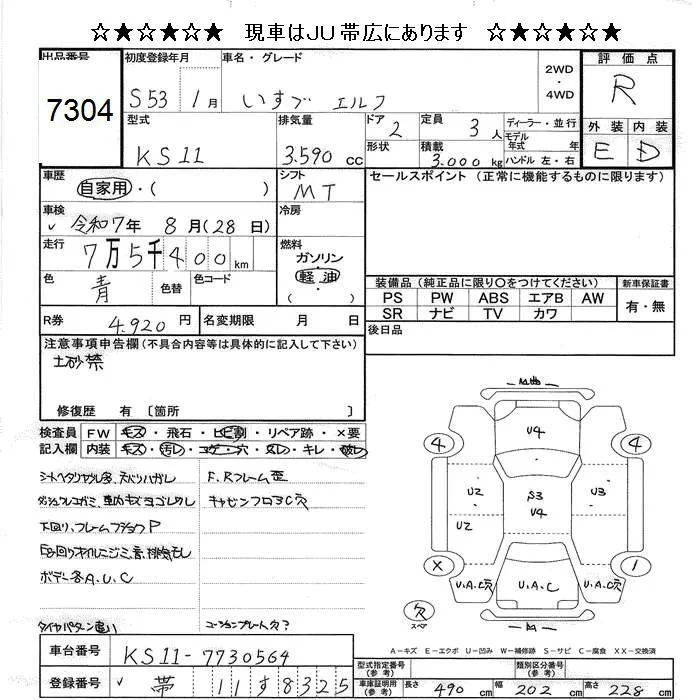 ☆★☆★☆ 現車はJU帯広にあります ☆★☆★☆
出品番号 初度登録年月 車名・グレード 2WD・4WD 評価点
7304 S53 1月 いすゞ エルフ R
型式 排気量 ドア 2 定員 3人 ディーラー・並行 外装 内装
KS11 3.590cc 形状 積載 3.000kg モデル年式 年 ハンドル 左・右 E D
車歴 自家用・( ) シフト MT セールスポイント (正常に機能するものに限ります)
車検 令和7年 8月(28日) 冷房
走行 7万5千400km 燃料 ガソリン 軽油 ( )
色 青 色替 色コード
装備品 (純正品に限り○をつけてください) 新車保証書
PS PW ABS エアB AW 有・無
SR ナビ TV カワ
R券 4.920円 名変期限 月 日 後日品
注意事項申告欄(不具合内容等は具体的に記入して下さい)
土砂禁
修復歴 有 〔箇所 〕
検査員 FW キズ・飛石・ヒビ割・リペア跡・×要
記入欄 内装 キズ・汚レ・コゲ・穴・スレ・キレ・破レ
F、Rフレーム歪
下回り、フレーム P
ボデー各A、U、C
タイヤパターン違い コーションプレート欠?
4 U4 4
U2 S3 U3
U2 U4
X 1
U、A、C穴 U、A、C U、A、C穴
欠 スペ
A-キズ E-エクボ U-凹み W-補修跡 S-サビ C-腐食 XX-交換済
車台番号 KS11-7730564
型式指定番号(参考) 類別区分番号(参考)
登録番号 帯 11す8325
車庫証明用(参考) 長さ 490cm 幅 202cm 高さ 228cm